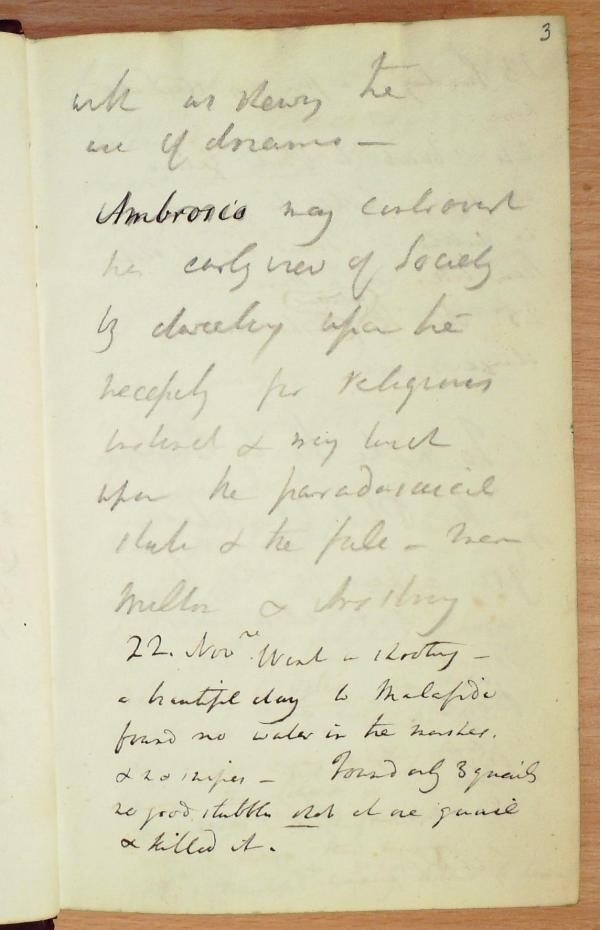 3
with or the
use of dreams —
Ambrosio may controvert
his early view of Society
by dwelling upon the
necessity for religious
instinct & may touch
upon the paradisaical
state & the fall –
Milton &
22. Novr. Went a shooting –
a beautiful day to Malafida
found no water in the marshes.
& no snipes – Found only 3 quails
no good stubble shot at one quail
& killed it.